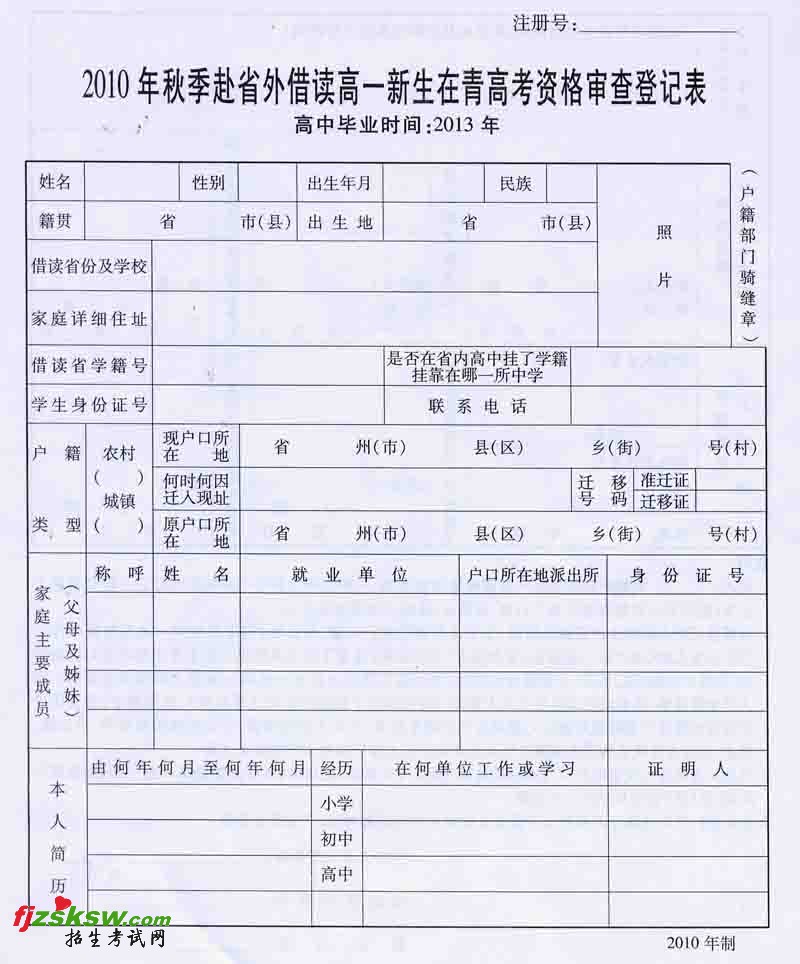 注册号:
2010 年秋季赴省外借读高一新生在青高考资格审查登记表
高中毕业时间:2013 年
姓名 性别 出生年月 民族
籍贯 省 市(县) 出生地 省 市(县)
照片
(户籍部门骑缝章)
借读省份及学校
家庭详细住址
借读省学籍号 是否在省内高中挂了学籍
挂靠在哪一所中学
学生身份证号 联系电话
户籍类型 农村
( )
城镇
( )
现户口所
在地 省 州(市) 县(区) 乡(街) 号(村)
何时何因
迁入现址 迁移
号码 准迁证
迁移证
原户口所
在地 省 州(市) 县(区) 乡(街) 号(村)
家庭主要成员
(父母及姊妹)
称呼 姓名 就业单位 户口所在地派出所 身份证号
本人简历
由何年何月至何年何月 经历 在何单位工作或学习 证明人
小学
初中
高中
fjzsksw.com
招生考试网
2010 年制